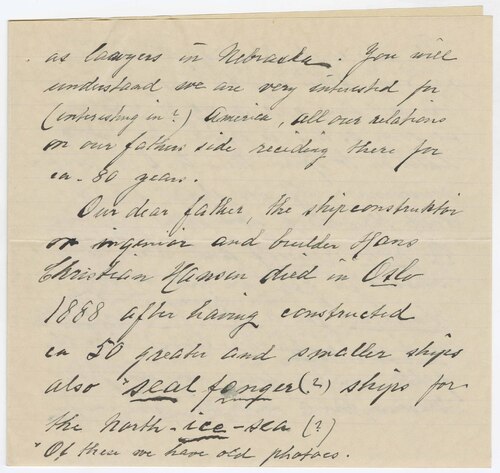 as lawyers in Nebraska. You will
understand we are very interested for
(interesting in?) America, all our relations
on our fathers side reciding there for
ca. 80 years.
Our dear father, the shipconstruktor
or ingeniør and builder Hans
Christian Hansen died in Oslo
1888 after having constructed
ca 50 greater and smaller ships
also "seal fanger (?) ships for
the North-ice-sea (?)
"Of these we have old photoes.